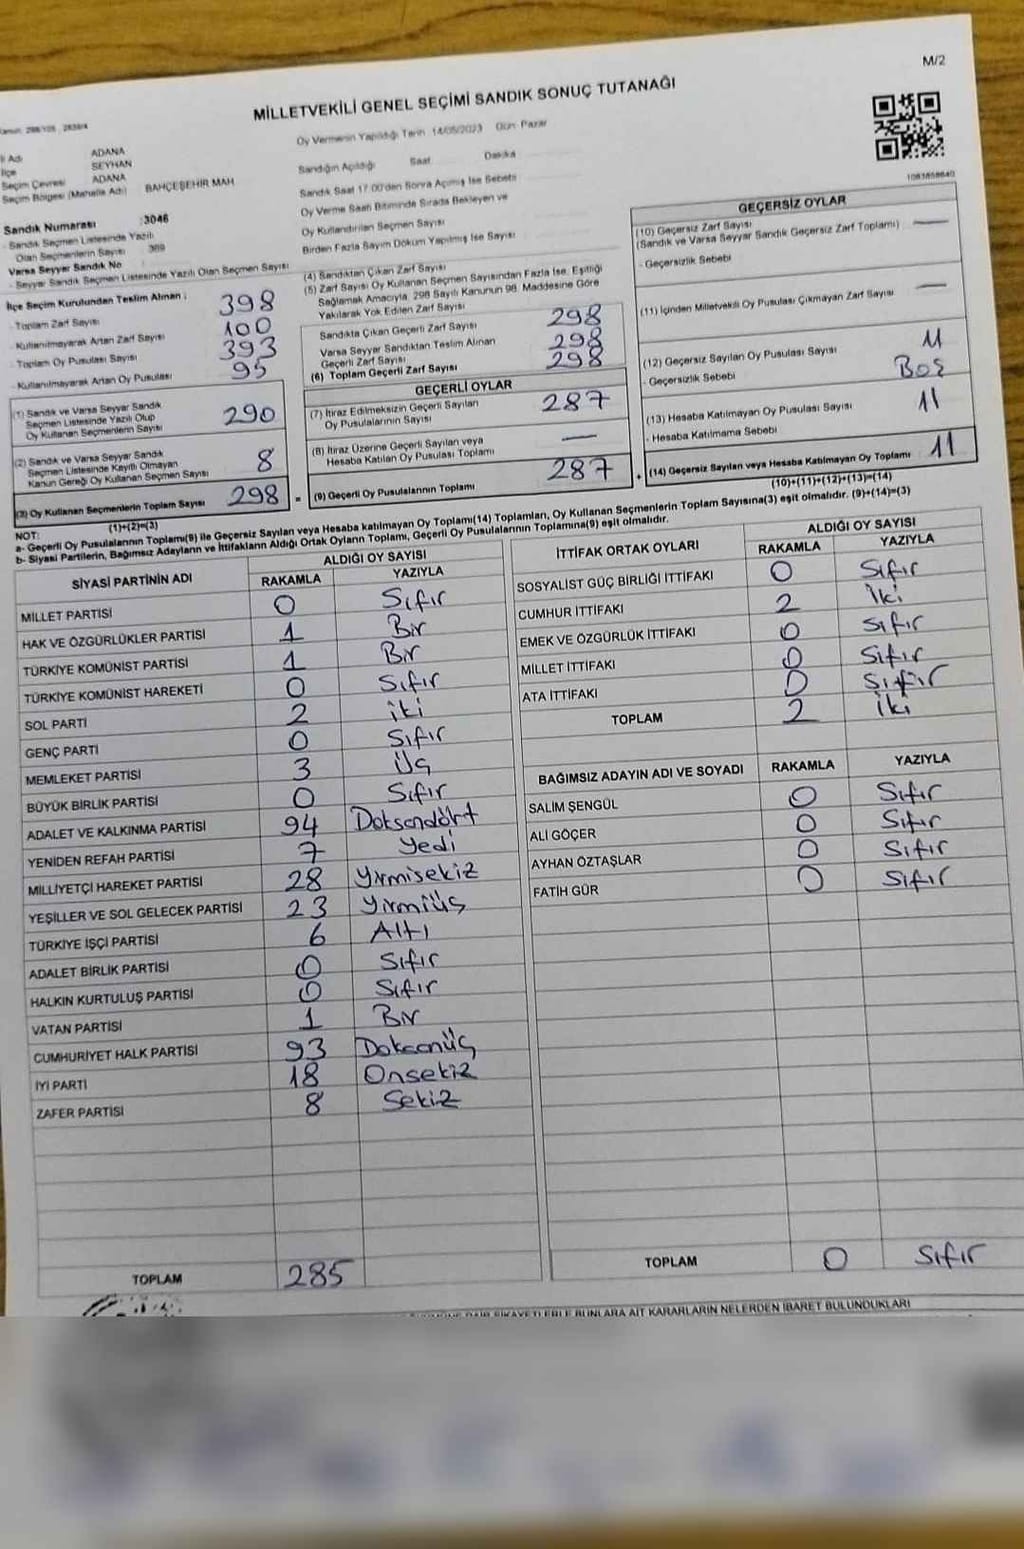 M/2
MİLLETVEKİLİ GENEL SEÇİMİ SANDIK SONUÇ TUTANAĞI
Oy Vermenin Yapıldığı Tarih 14/05/2023 Gün Pazar
İl Adı ADANA
İlçe SEYHAN
Seçim Çevresi ADANA
Seçim Bölgesi (Mahalle Adı) BAHÇEŞEHİR MAH
Sandık Numarası :3046
- Sandık Seçmen Listesinde Yazılı
Olan Seçmenlerin Sayısı 389
Varsa Seyyar Sandık No
- Seyyar Sandık Seçmen Listesinde Yazılı Olan Seçmen Sayısı
Sandığın Açıldığı Saat Dakika
Sandık Saat 17.00'den Sonra Açılmış İse Sebebi
Oy Verme Saati Bitiminde Sırada Bekleyen ve
Oy Kullandırılan Seçmen Sayısı
Birden Fazla Sayım Döküm Yapılmış İse Sayısı
1083858640
İlçe Seçim Kurulundan Teslim Alınan :
- Toplam Zarf Sayısı 398
- Kullanılmayarak Artan Zarf Sayısı 100
- Toplam Oy Pusulası Sayısı 393
- Kullanılmayarak Artan Oy Pusulası 95
(1) Sandık ve Varsa Seyyar Sandık
Seçmen Listesinde Yazılı Olup
Oy Kullanan Seçmenlerin Sayısı 290
(2) Sandık ve Varsa Seyyar Sandık
Seçmen Listesinde Kayıtlı Olmayan
Kanun Gereği Oy Kullanan Seçmen Sayısı 8
(3) Oy Kullanan Seçmenlerin Toplam Sayısı 298
(1)+(2)=(3)
(4) Sandıktan Çıkan Zarf Sayısı
(5) Zarf Sayısı Oy Kullanan Seçmen Sayısından Fazla İse, Eşitliği
Sağlamak Amacıyla, 298 Sayılı Kanunun 98. Maddesine Göre
Yakılarak Yok Edilen Zarf Sayısı
Sandıkta Çıkan Geçerli Zarf Sayısı 298
Varsa Seyyar Sandıktan Teslim Alınan
Geçerli Zarf Sayısı 298
(6) Toplam Geçerli Zarf Sayısı 298
GEÇERLİ OYLAR
(7) İtiraz Edilmeksizin Geçerli Sayılan
Oy Pusulalarının Sayısı 287
(8) İtiraz Üzerine Geçerli Sayılan veya
Hesaba Katılan Oy Pusulası Toplamı —
= (9) Geçerli Oy Pusulalarının Toplamı 287
GEÇERSİZ OYLAR
(10) Geçersiz Zarf Sayısı —
(Sandık ve Varsa Seyyar Sandık Geçersiz Zarf Toplamı)
- Geçersizlik Sebebi
(11) İçinden Milletvekili Oy Pusulası Çıkmayan Zarf Sayısı —
(12) Geçersiz Sayılan Oy Pusulası Sayısı 11
- Geçersizlik Sebebi Boş
(13) Hesaba Katılmayan Oy Pusulası Sayısı 11
- Hesaba Katılmama Sebebi
+ (14) Geçersiz Sayılan veya Hesaba Katılmayan Oy Toplamı 11
(10)+(11)+(12)+(13)=(14)
NOT:
a- Geçerli Oy Pusulasının Toplamı(9) ile Geçersiz Sayılan veya Hesaba katılmayan Oy Toplamı(14) Toplamları, Oy Kullanan Seçmenlerin Toplam Sayısına(3) eşit olmalıdır. (9)+(14)=(3)
b- Siyasi Partilerin, Bağımsız Adayların ve İttifakların Aldığı Ortak Oyların Toplamı, Geçerli Oy Pusulalarının Toplamına(9) eşit olmalıdır.
SİYASİ PARTİNİN ADI ALDIĞI OY SAYISI
RAKAMLA YAZIYLA
MİLLET PARTİSİ 0 Sıfır
HAK VE ÖZGÜRLÜKLER PARTİSİ 1 Bir
TÜRKİYE KOMÜNİST PARTİSİ 1 Bir
TÜRKİYE KOMÜNİST HAREKETİ 0 Sıfır
SOL PARTİ 2 iki
GENÇ PARTİ 0 Sıfır
MEMLEKET PARTİSİ 3 Üç
BÜYÜK BİRLİK PARTİSİ 0 Sıfır
ADALET VE KALKINMA PARTİSİ 94 Doksandört
YENİDEN REFAH PARTİSİ 7 Yedi
MİLLİYETÇİ HAREKET PARTİSİ 28 Yirmisekiz
YEŞİLLER VE SOL GELECEK PARTİSİ 23 Yirmiüç
TÜRKİYE İŞÇİ PARTİSİ 6 Altı
ADALET BİRLİK PARTİSİ 0 Sıfır
HALKIN KURTULUŞ PARTİSİ 0 Sıfır
VATAN PARTİSİ 1 Bir
CUMHURİYET HALK PARTİSİ 93 Doksanüç
İYİ PARTİ 18 Onsekiz
ZAFER PARTİSİ 8 Sekiz
TOPLAM 285
İTTİFAK ORTAK OYLARI ALDIĞI OY SAYISI
RAKAMLA YAZIYLA
SOSYALİST GÜÇ BİRLİĞİ İTTİFAKI 0 Sıfır
CUMHUR İTTİFAKI 2 iki
EMEK VE ÖZGÜRLÜK İTTİFAKI 0 Sıfır
MİLLET İTTİFAKI 0 Sıfır
ATA İTTİFAKI 0 Sıfır
TOPLAM 2 iki
BAĞIMSIZ ADAYIN ADI VE SOYADI RAKAMLA YAZIYLA
SALİM ŞENGÜL 0 Sıfır
ALİ GÖÇER 0 Sıfır
AYHAN ÖZTAŞLAR 0 Sıfır
FATİH GÜR 0 Sıfır
TOPLAM 0 Sıfır
ŞİKAYETLERLE BUNLARA AİT KARARLARIN NELERDEN İBARET BULUNDUKLARI